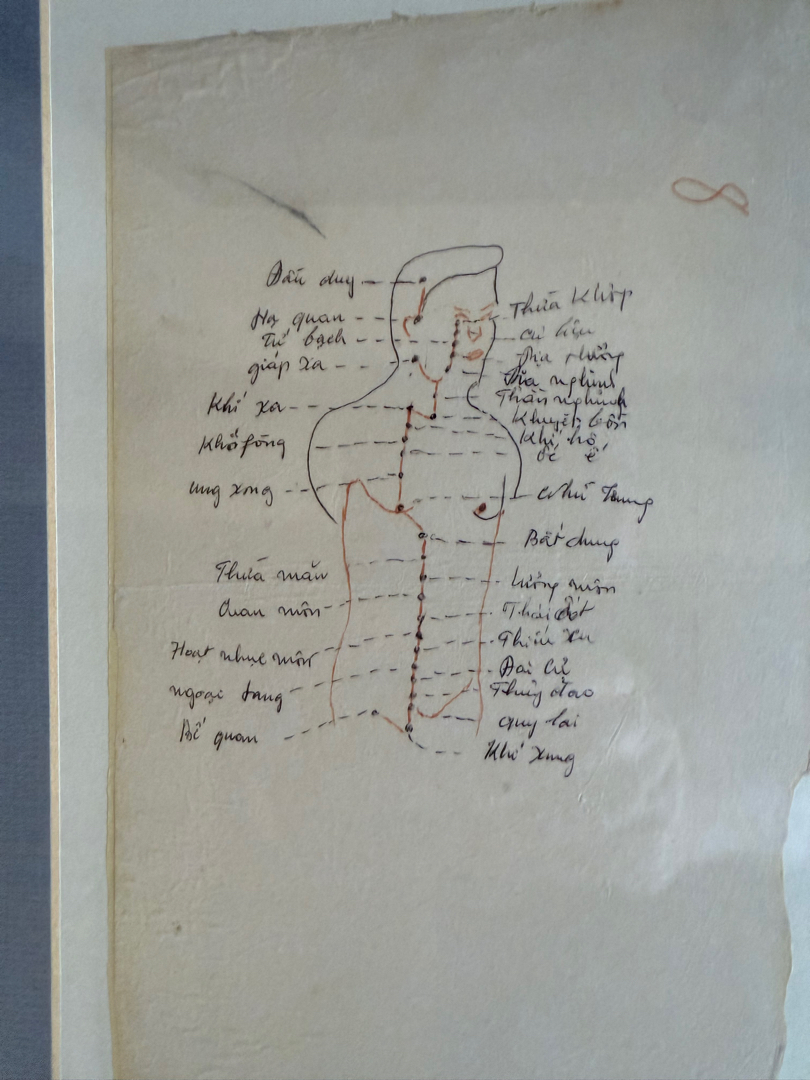 8
Đầu duy
Hạ quan
Tứ bạch
giáp xa
Khí xá
Khố phòng
ưng xong
Thừa mãn
Quan môn
Hoạt nhục môn
ngoại lang
Bễ quan
Thừa Khốp
cự liêu
Địa thương
Đại nghinh
Nhân nghinh
Khuyết bồn
Khí hộ
ốc ế
Nhũ Trung
Bất dung
lương môn
Thái ất
Thiên xu
Đại cự
Thủy đạo
Quy lai
Khí xung